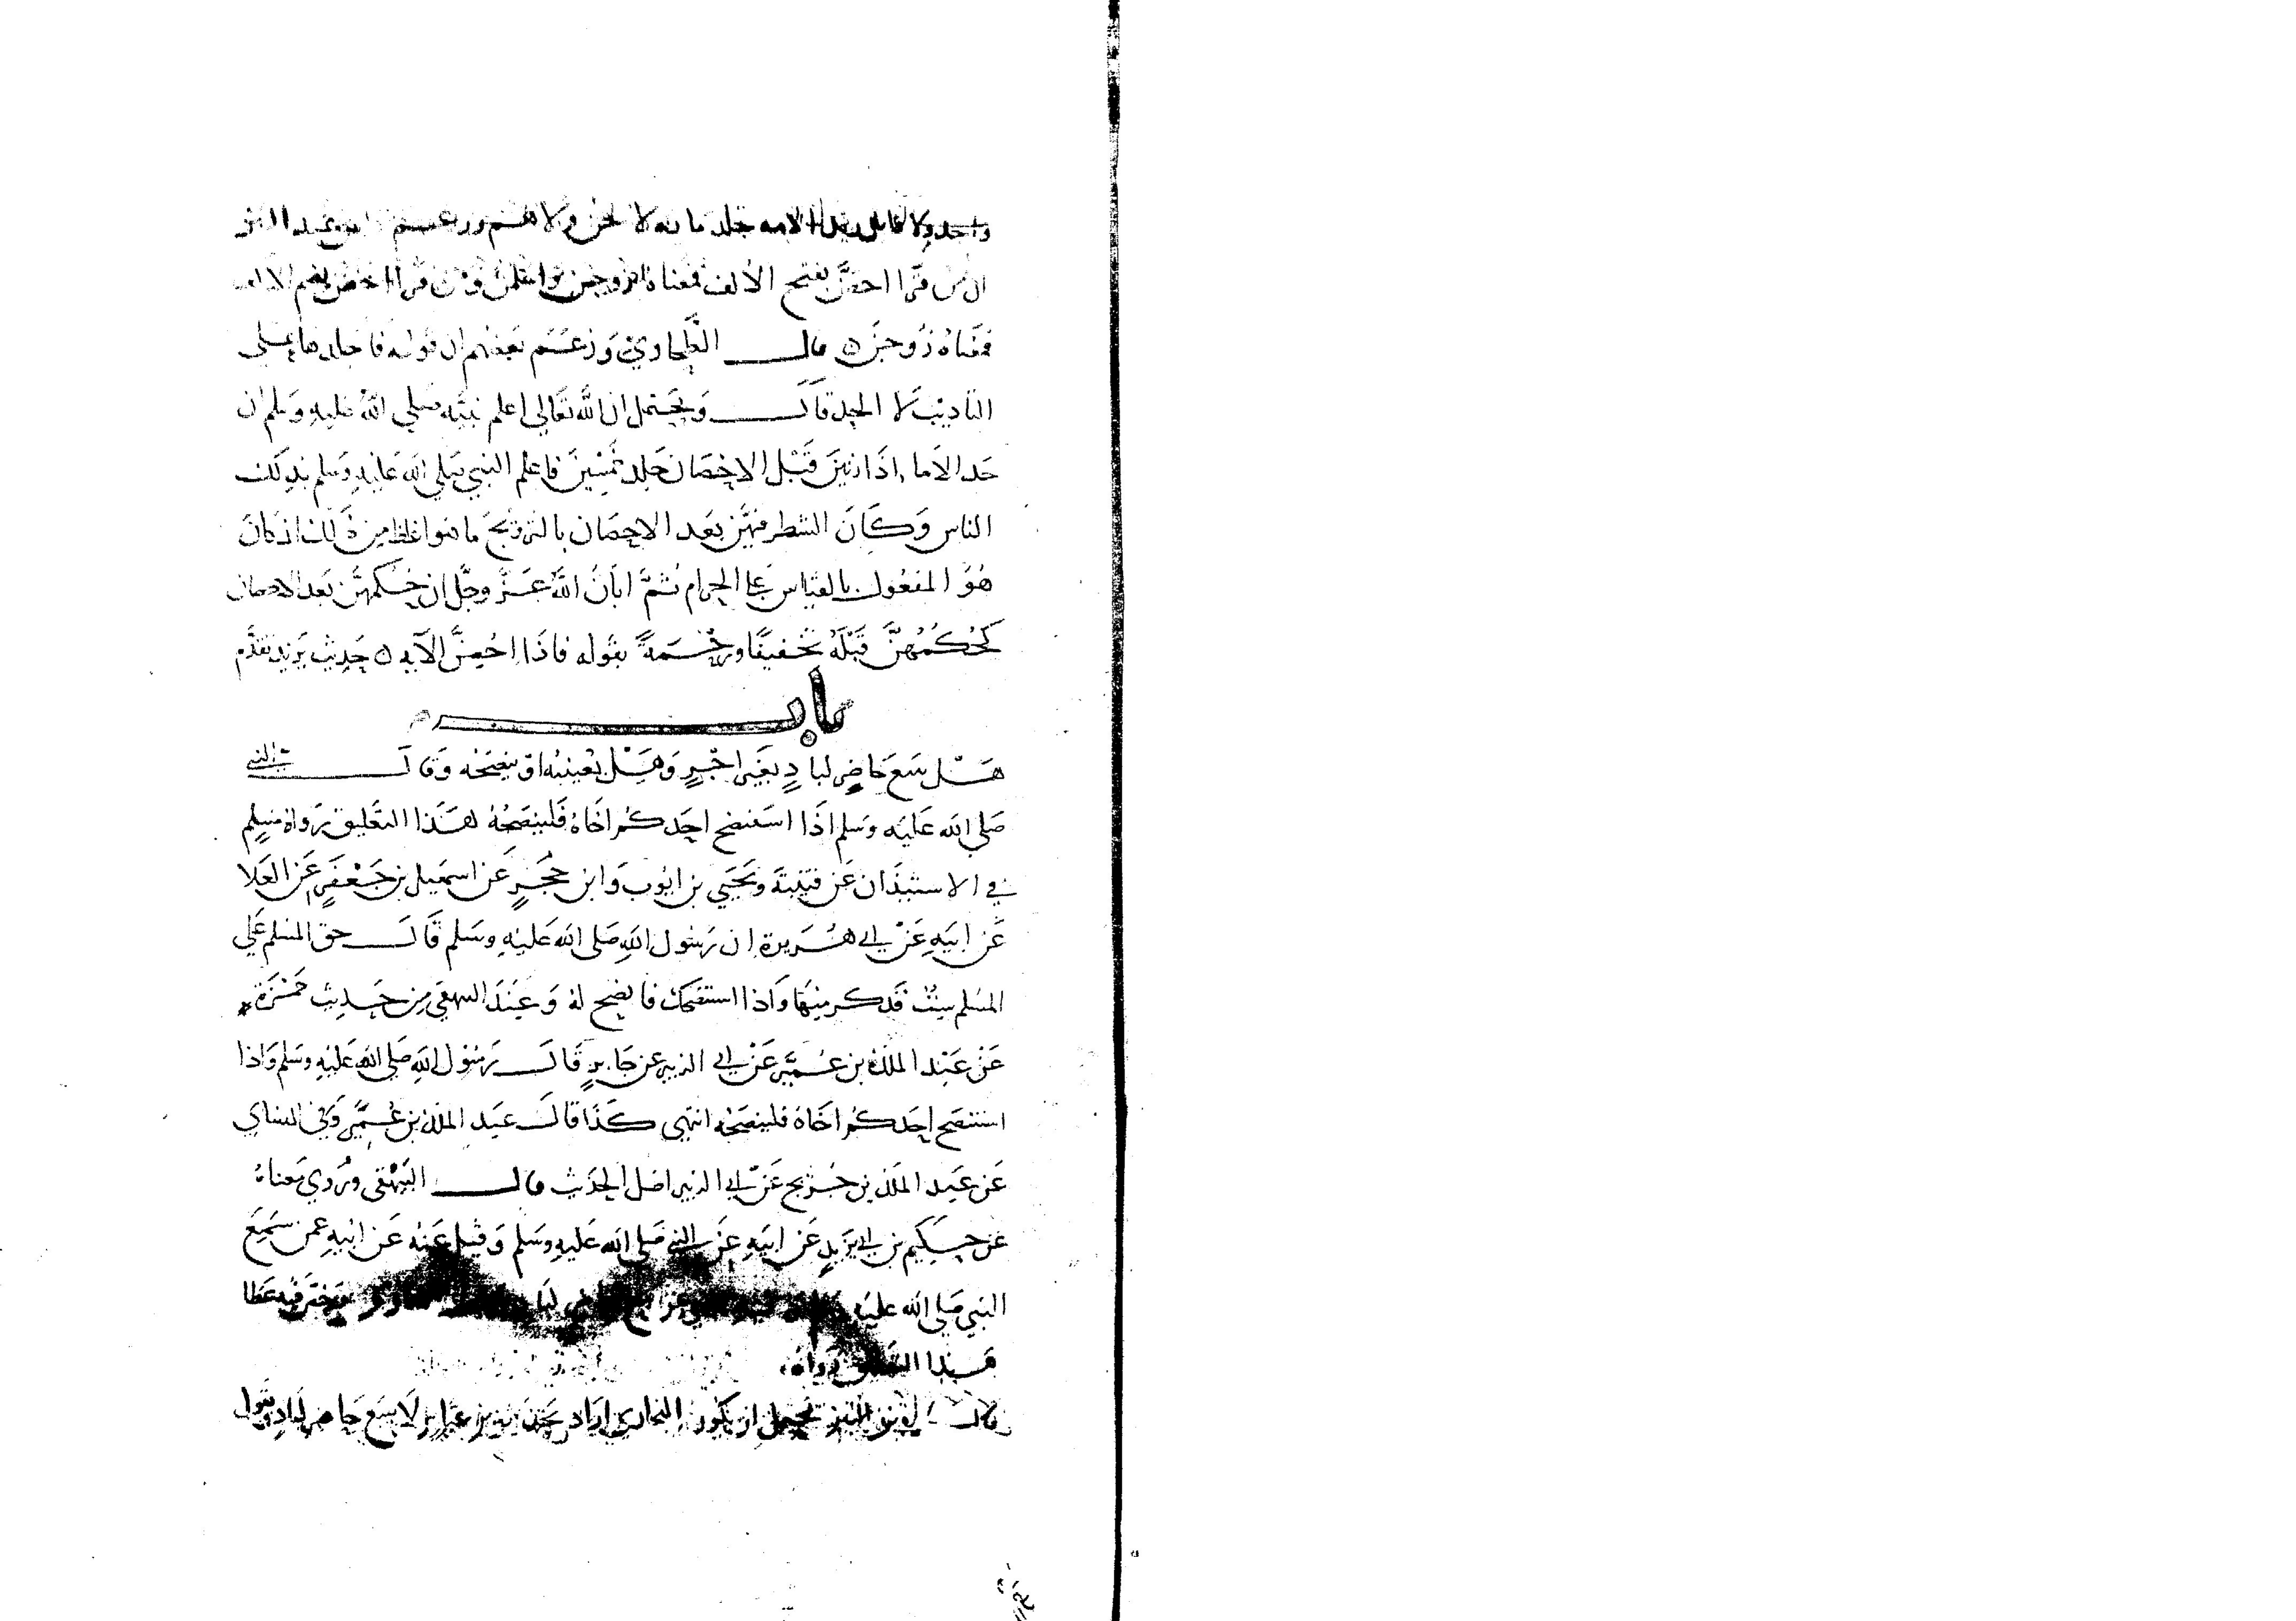 واحد ولا قائل بجلد الامه جلد مايه لا نحن ولا هم وزعم
ان من قرا احصن بفتح الالف فمعناه تزوجن واسلمن ومن قرا احصن بضم الالف
فمعناه زوجن قال الطحاوي وزعم بعضهم ان قوله فاجلدها يعني
التاديب لا الحد قال ويحتمل ان الله تعالي اعلم نبيه صلي الله عليه وسلم ان
حد الاما اذا زنين قبل الاحصان جلد خمسين فاعلم النبي صلي الله عليه وسلم بذلك
الناس وكان الشطر منهن بعد الاحصان بالتزويج ما هو اغلظ من ذلك اذ كان
هو المفعول بالقياس علي الحرام ثم ابان الله عز وجل ان حكمهن بعد الاحصان
كحكمهن قبله تخفيفا ورحمة بقوله فاذا احصن الآيه حديث يزيد تقدم
باب
هل يبيع حاضر لباد بغير اجر وهل يعينه او ينصحه وقال النبي
صلي الله عليه وسلم اذا استنصح احدكم اخاه فلينصحه هذا التعليق رواه مسلم
في الاستيذان عن قتيبة ويحيي بن ايوب وابن حجر عن اسمعيل بن جعفر عن العلا
عن ابيه عن ابي هريرة ان رسول الله صلي الله عليه وسلم قال حق المسلم علي
المسلم ست فذكر منها واذا استنصحك فانصح له وعند البيهقي من حديث حمزة
عن عبد الملك بن عمير عن ابي الزبير عن جابر قال رسول الله صلي الله عليه وسلم واذا
استنصح احدكم اخاه فلينصحه انتهي كذا قال عبد الملك بن عمير وفي النساي
عن عبد الملك بن جريج عن ابي الزبير اصل الحديث قال البيهقي وروي معناه
عن حكيم بن ابي يزيد عن ابيه عن النبي صلي الله عليه وسلم وقيل عنه عن ابيه عمن سمع
النبي صلي الله عليه ورخص فيه عطا
هذا التعليق رواه
قال ابن المنير يحتمل ان يكون البخاري اراد بحديث ابن عباس لا يبيع حاضر لباد وبقول